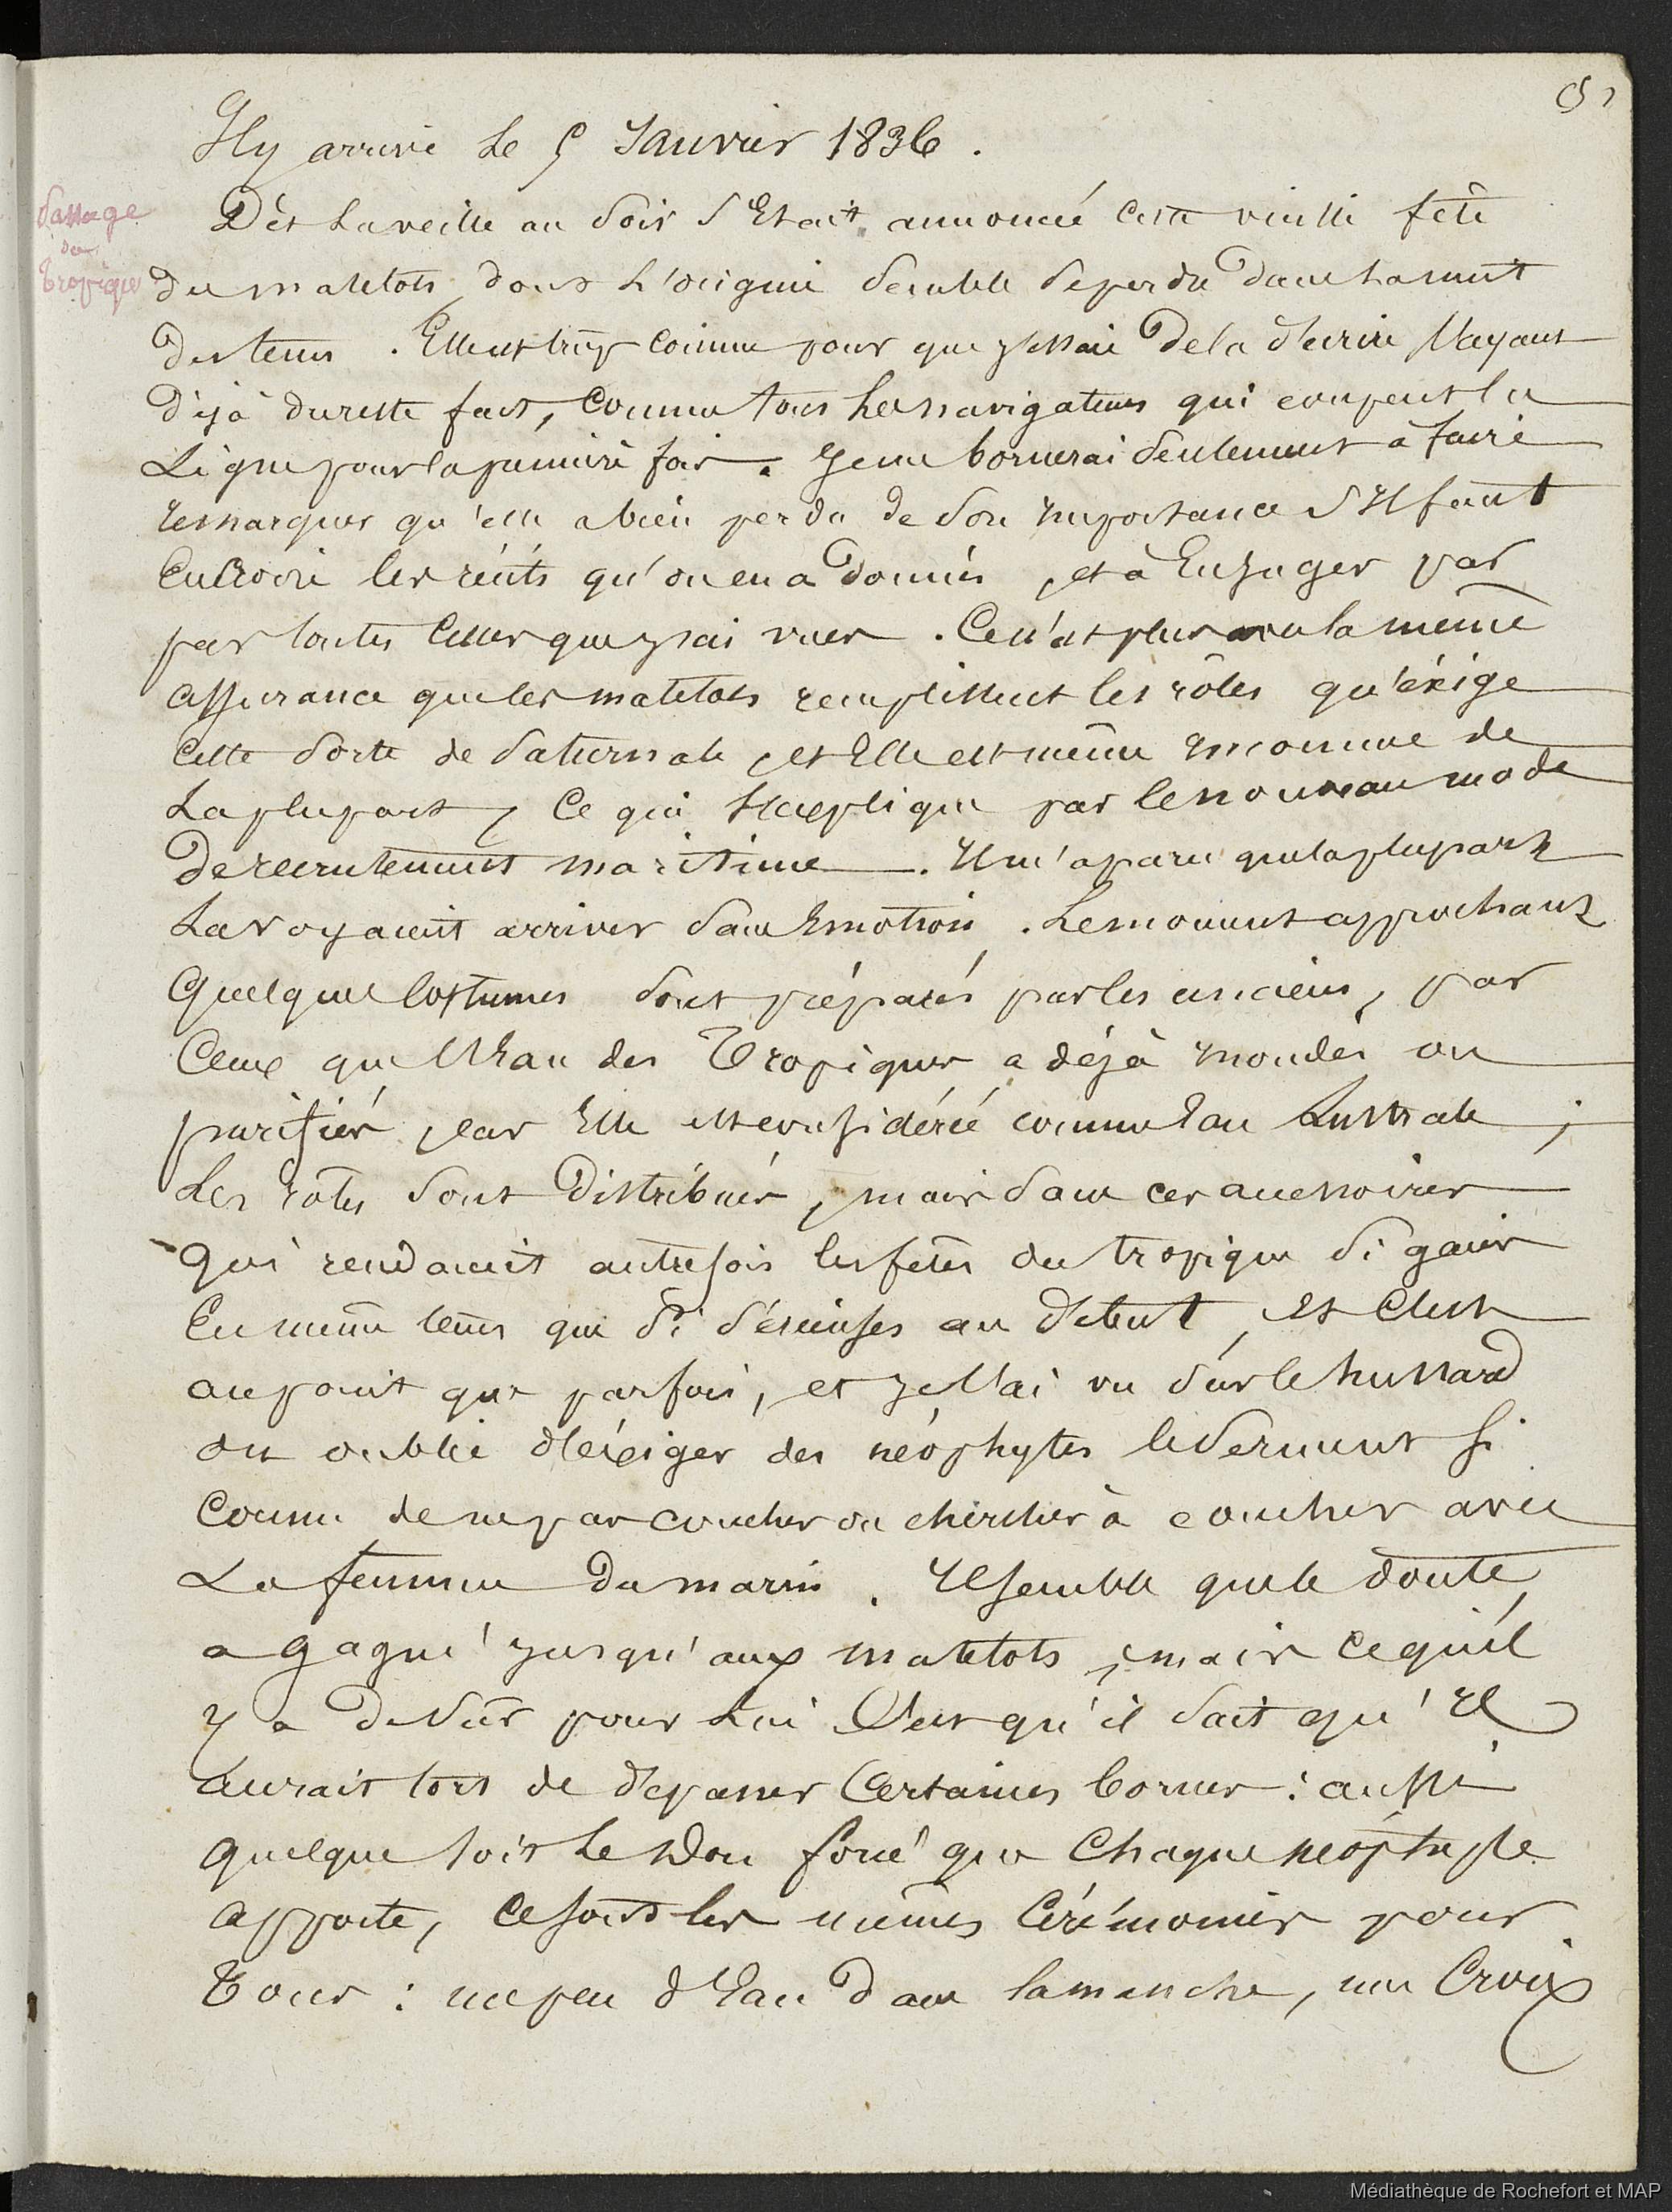 Il y arrive le 5 Janvier 1836.
Passage
du
Tropique
Dès la veille au soir s'était annoncée cette vieille fête
du matelots, dont l'origine semble se perdre dans la nuit
des tems. Elle est trop connue pour que j'essaie de la d'écrire l'ayant
déjà du reste fait, comme tous les navigateurs qui coupent la
Ligne pour la première fois. Je me bornerai seulement à faire
remarquer qu'elle a bien perdu de son importance s'il faut
en croire les récits qu'on en a donnés, et à en juger par
par toutes celles que j'ai vues. Ce n'est plus avec la même
assurance que les matelots remplissent les rôles qu'éxige
cette sorte de saturnale, et elle est même inconnue de
la plupart, ce qui s'explique par le nouveau mode
de recrutement maritime. Il m'a paru que la plupart
la voyaient arriver sans émotion. Le moment approchant
quelques costumes sont préparés par les anciens, par
ceux que l'eau des Tropiques a déjà inondés ou
purifiés, car elle est considérée comme eau lustrale;
les rôles sont distribués, mais sans ces accessoires
qui rendaient autrefois les fêtes du tropique si gaies
en même tems que si sérieuses au début, et c'est
au point que parfois, et je l'ai vu sur le hussard
on oublie d'éxiger des néophytes le serment si
connu de ne pas coucher ou chercher à coucher avec
la femme du marin. Il semble que le doute
a gagné jusqu'aux matelots, mais ce qu'il
y a de sûr pour lui c'est qu'il sait qu'il
aurait tort de dépasser certaines bornes: aussi
quelque soit le don forcé que chaque néophyte
apporte, ce sont les mêmes cérémonies pour
tous: un peu d'eau dans la manche, une croix
Médiathèque de Rochefort et MAP